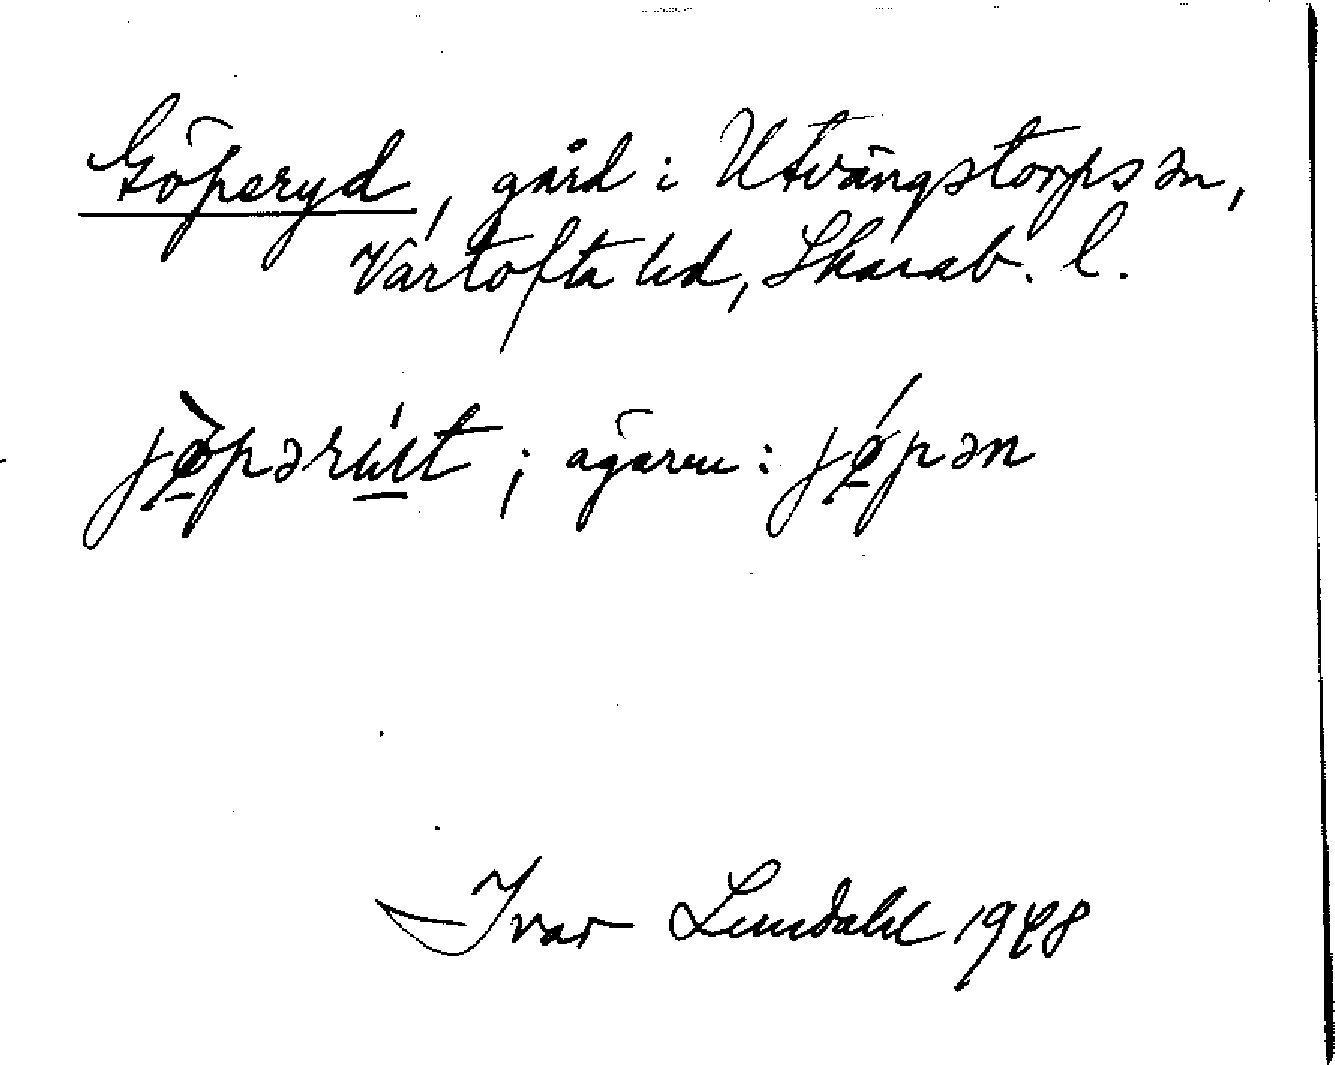 Göperyd, gård i Utvängstorps sn,
Vartofta hd, Skarab. l.
jø̀pərút ; ägaren : jǿpən
Ivar Lundahl 1948